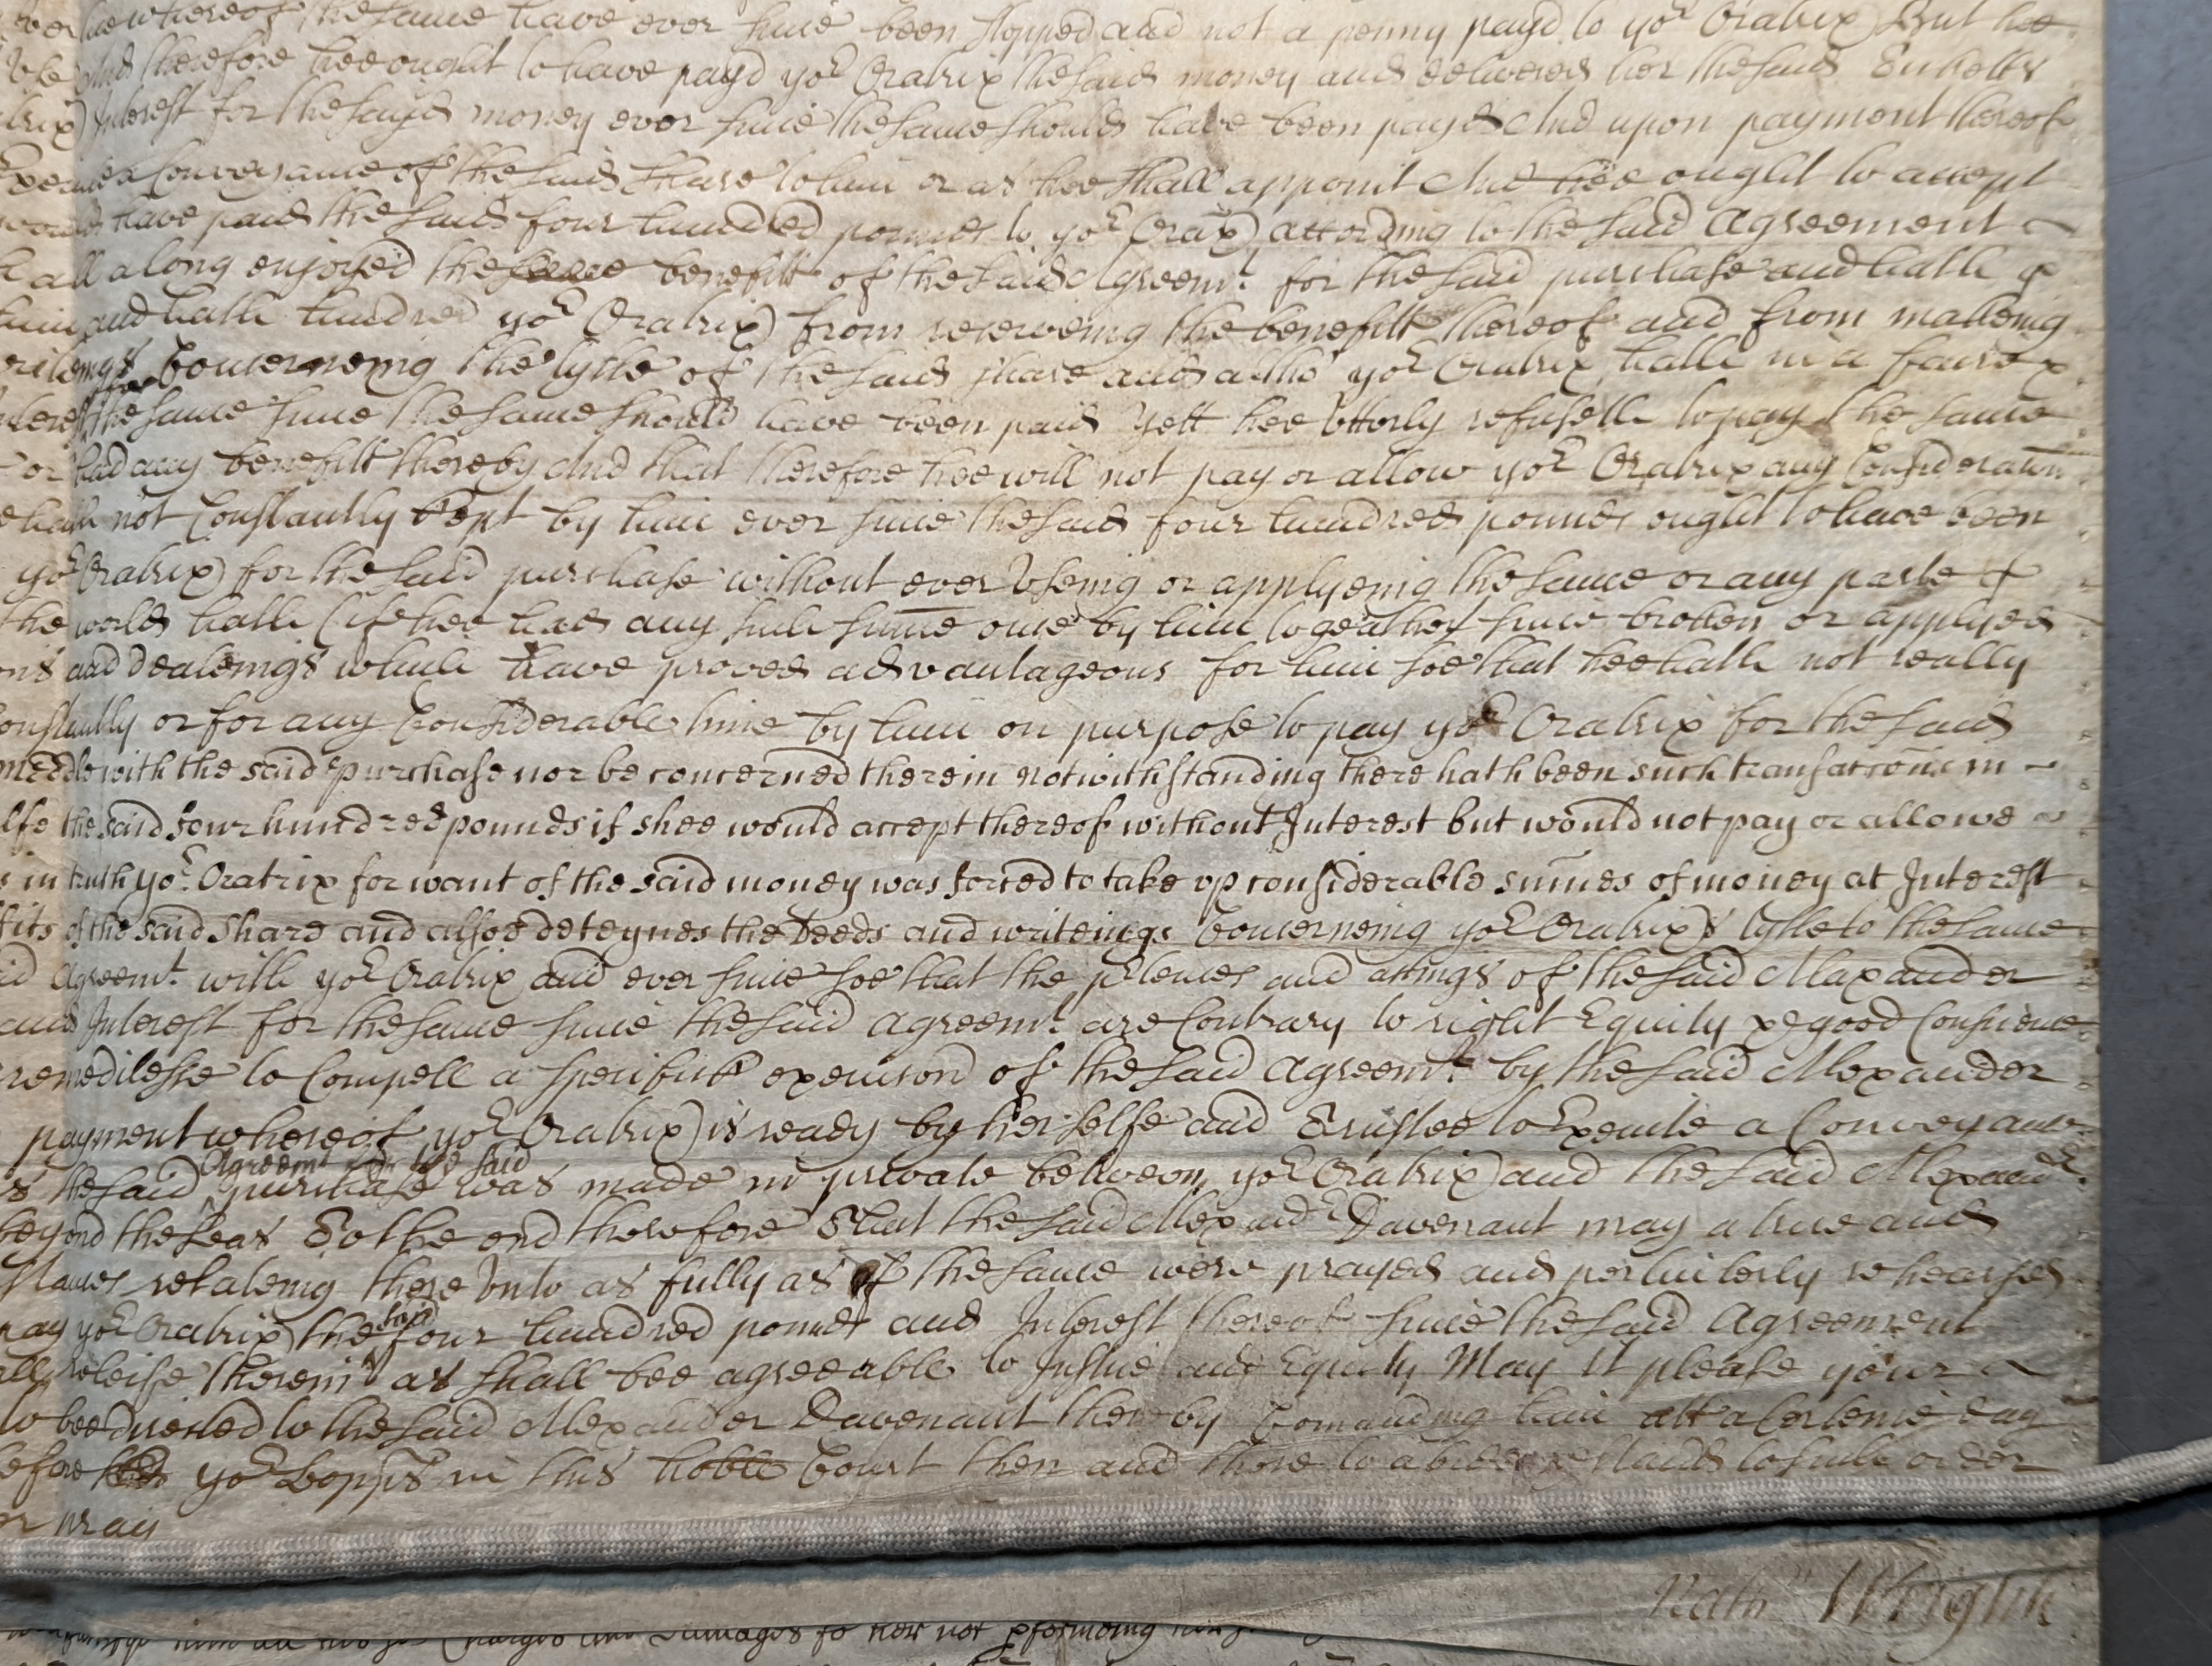 whereof the same have ever since been stopped and not a penny payd to yor Oratrix But hee
And therefore hee ought to have payd yor Oratrix the said money and delivered her the said
Interest for the sayd money ever since the same should have been payd And upon payment thereof
a Conveyance of the said share to him or as hee shall appoint And hee ought to accept
have paid the said four hundred pounds to yor Orax according to the said Agreement
all along enjoyed the benefitt of the said Agreemt. for the said purchase and hath
and hath hindred yor Oratrix from receiveing the benefitt thereof and from makeing
Concerneing the tytle of the said share and altho' yor Oratrix hath in a faire
for the same since the same should have been paid yett hee utterly refuseth to pay the same
or had any benefitt thereby And that therefore hee will not pay or allow yor Oratrix any Consideracon
hath not Constantly kept by him ever since the said four hundred pounds ought to have been
yor Oratrix for the said purchase without ever Useing or applyeing the same or any parte of
the world hath (if hee had any such sume once by him togeather since broken or applyed
and dealeings which have proved advantageous for him soe that hee hath not really
Constantly or for any Considerable time by him on purpose to pay yor Oratrix for the said
meddle with the said purchase nor be concerned therein notwithstanding there hath been such transaccons in
the said four hundred pounds if shee would accept thereof without Interest but would not pay or allowe
in truth yor. Oratrix for want of the said money was forced to take up considerable sumes of money at Interest
fits of the said share and alsoe deteynes the deeds and writeings Concerneing yor Oratrix's tytle to the same
Agreemt. with yor Oratrix and ever since soe that the prtences and actings of the said Alexander
and Interest for the same since the said Agreemt. are Contrary to right Equity & good Conscience
remedilesse to Compell a specifick execucon of the said Agreemt. by the said Alexander
payment whereof yor Oratrix is ready by her selfe and Trustee to Execute a Conveyance
Agreemt for the said
the said purchase was made in private between yor Oratrix and the said Alexandr.
beyond the Seas To the end therefore That the said Alexandr Davenant may a true and
relateing there unto as fully as if the same were prayed and perticulerly rehearsed
said
pay yor Oratrix the four hundred pounds and Interest thereof since the said Agreement
releife therein as shall bee agreeable to Justice and Equity May It please your
to bee directed to the said Alexander Davenant thereby Comanding him att a Certeine day
before yor Lopps in this hoble Court then and there to abide & stand to such order
or pray
Nath Wright